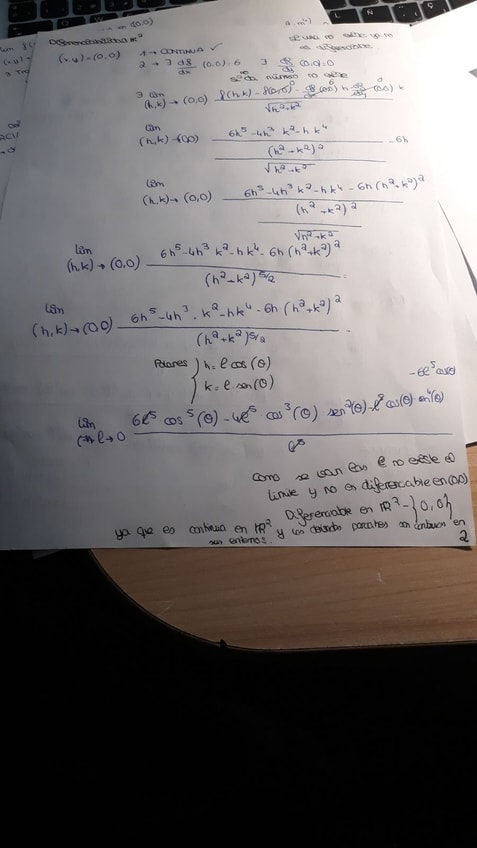 Diferenciabilidad R²
(x,y) = (0,0) 1 → CONTINUA ✓
2 → ∃ df/dx (0,0) = 6 ∃ df/dy (0,0) = 0
3 lim (h,k) → (0,0) f(h,k) - f(0,0) - df/dx (0,0) h - df/dy (0,0) k / √h²+k²
lim (h,k) → (0,0) 6h⁵ - 4h³ k² - h k⁴ / (h² + k²)² - 6h / √h²+k²
lim (h,k) → (0,0) 6h⁵ - 4h³ k² - hk⁴ - 6h (h²+k²)² / (h² + k²)² / √h²+k²
lim (h,k) → (0,0) 6h⁵ - 4h³ k² - hk⁴ - 6h (h²+k²)² / (h² + k²)^5/2
lim (h,k) → (0,0) 6h⁵ - 4h³ · k² - hk⁴ - 6h (h²+k²)² / (h² + k²)^5/2
Polares { h = ρ cos(θ)
k = ρ · sen(θ)
- 6ρ⁵ cos(θ)
lim ρ → 0 6ρ⁵ · cos⁵(θ) - 4ρ⁵ cos³(θ) sen²(θ) - ρ⁵ cos(θ) · sen⁴(θ) / ρ⁵
Como se van las ρ no existe el
límite y no es diferenciable en (0,0)
Diferenciable en R² - {0,0}
ya que es continua en R² y las derivadas parciales son continuas en
sus entornos.
2